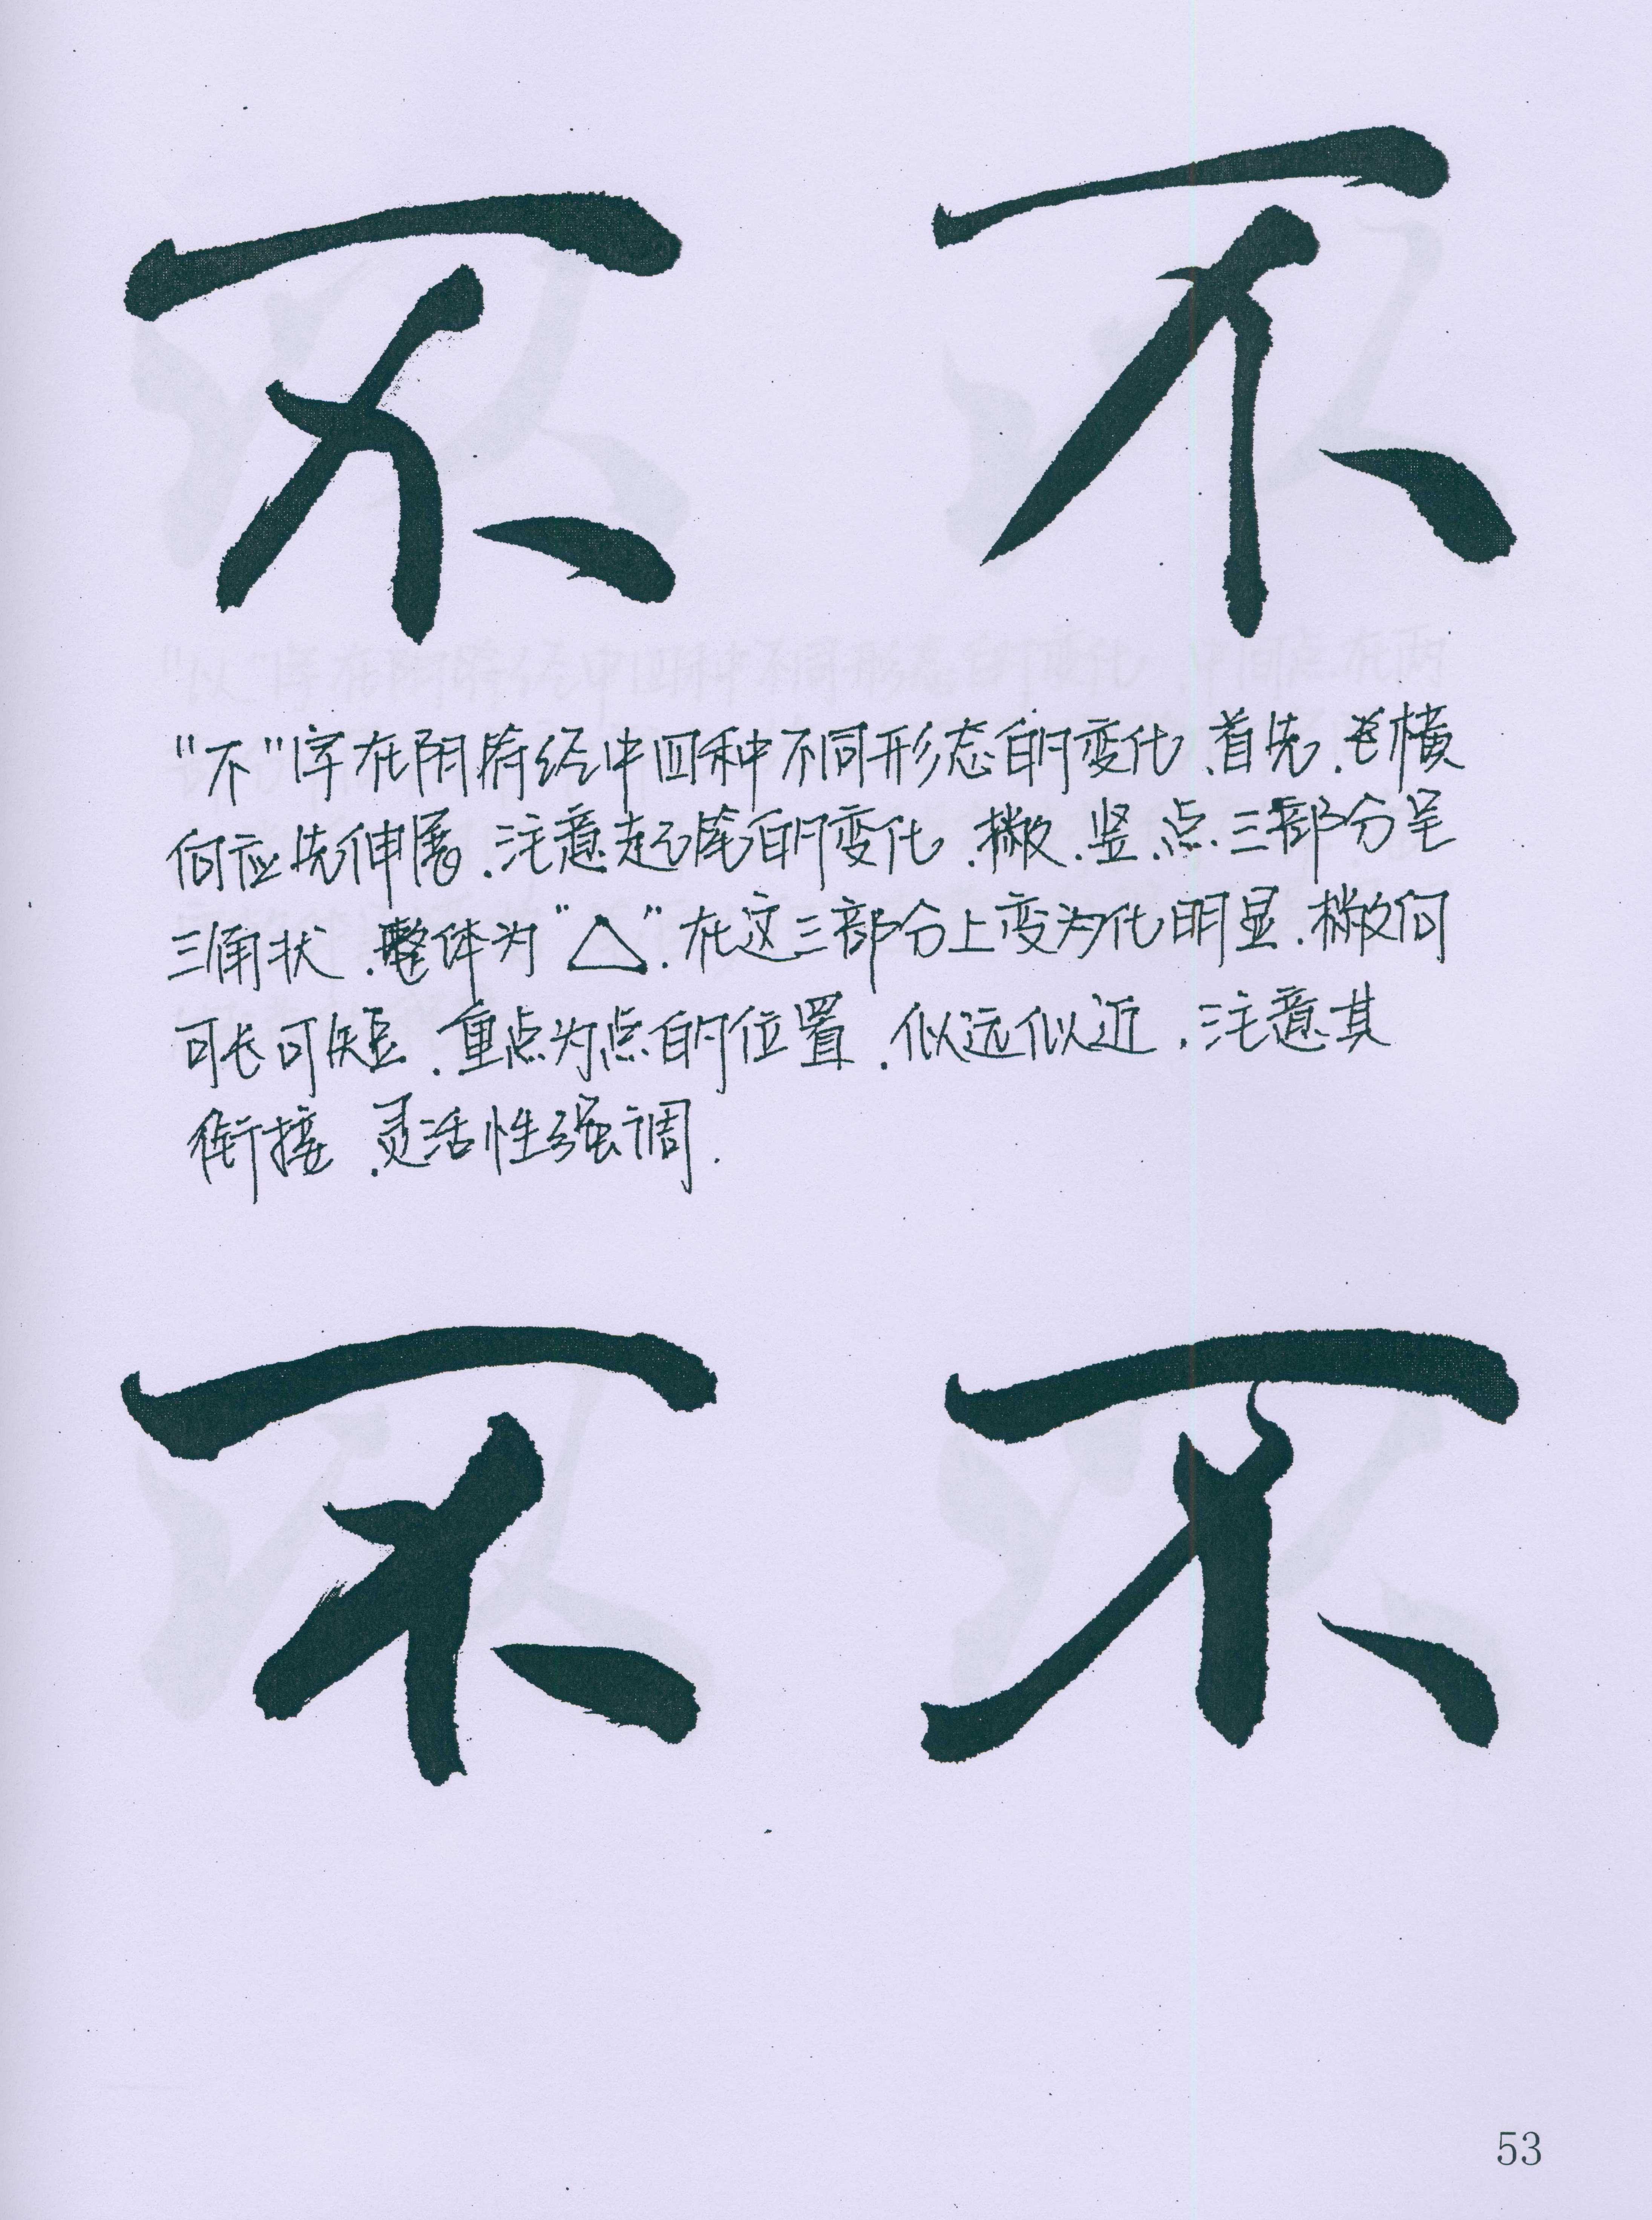 不 不
"不"字在阴符经中四种不同形态的变化、首先、长横
向应先伸展、注意起尾的变化、撇、竖、点、三部分呈
三角状、整体为"△"、在这三部分上变为化明显、撇向
可长可短、重点为点的位置、似远似近、注意其
衔接、灵活性强调.
不 不
53